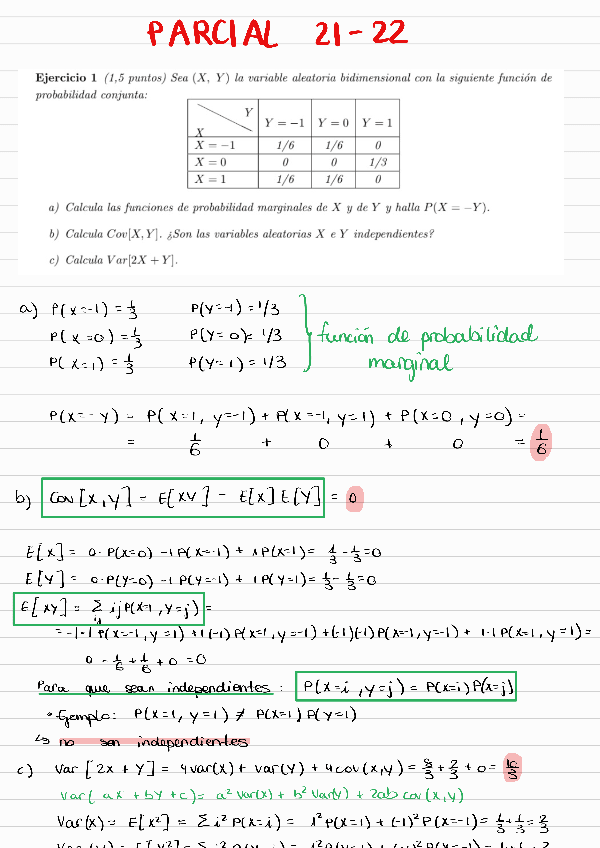 PARCIAL 21-22
Ejercicio 1 (1,5 puntos) Sea (X, Y) la variable aleatoria bidimensional con la siguiente función de
probabilidad conjunta:
Y
X
Y = −1 Y = 0 Y = 1
X = −1 1/6 1/6 0
X = 0 0 0 1/3
X = 1 1/6 1/6 0
a) Calcula las funciones de probabilidad marginales de X y de Y y halla P(X = −Y).
b) Calcula Cov[X, Y]. ¿Son las variables aleatorias X e Y independientes?
c) Calcula Var[2X + Y].
a) P(X=-1) = 1/3 P(Y=-1) = 1/3
P(X=0) = 1/3 P(Y=0) = 1/3
P(X=1) = 1/3 P(Y=1) = 1/3
función de probabilidad
marginal
P(X=-Y) = P(X=1, Y=-1) + P(X=-1, Y=1) + P(X=0, Y=0) =
= 1/6 + 0 + 0 = 1/6
b) Cov[X,Y] = E[XY] - E[X] E[Y] = 0
E[X] = 0·P(X=0) -1P(X=-1) + 1P(X=1) = 1/3 - 1/3 = 0
E[Y] = 0·P(Y=0) -1P(Y=-1) + 1P(Y=1) = 1/3 - 1/3 = 0
E[XY] = Σ ij P(X=i, Y=j) =
= -1·1 P(X=-1, Y=1) + 1(-1) P(X=1, Y=-1) + (-1)(-1) P(X=-1, Y=-1) + 1·1 P(X=1, Y=1) =
0 - 1/6 + 1/6 + 0 = 0
Para que sean independientes: P(X=i, Y=j) = P(X=i) P(X=j)
• Ejemplo: P(X=1, Y=1) ≠ P(X=1) P(Y=1)
↳ no son independientes
c) Var[2X + Y] = 4Var(X) + Var(Y) + 4cov(X,Y) = 8/3 + 2/3 + 0 = 10/3
Var(aX + bY + c) = a² Var(X) + b² Var(Y) + 2ab cov(X,Y)
Var(X) = E[X²] = Σ i² P(X=i) = 1² P(X=1) + (-1)² P(X=-1) = 1/3 + 1/3 = 2/3